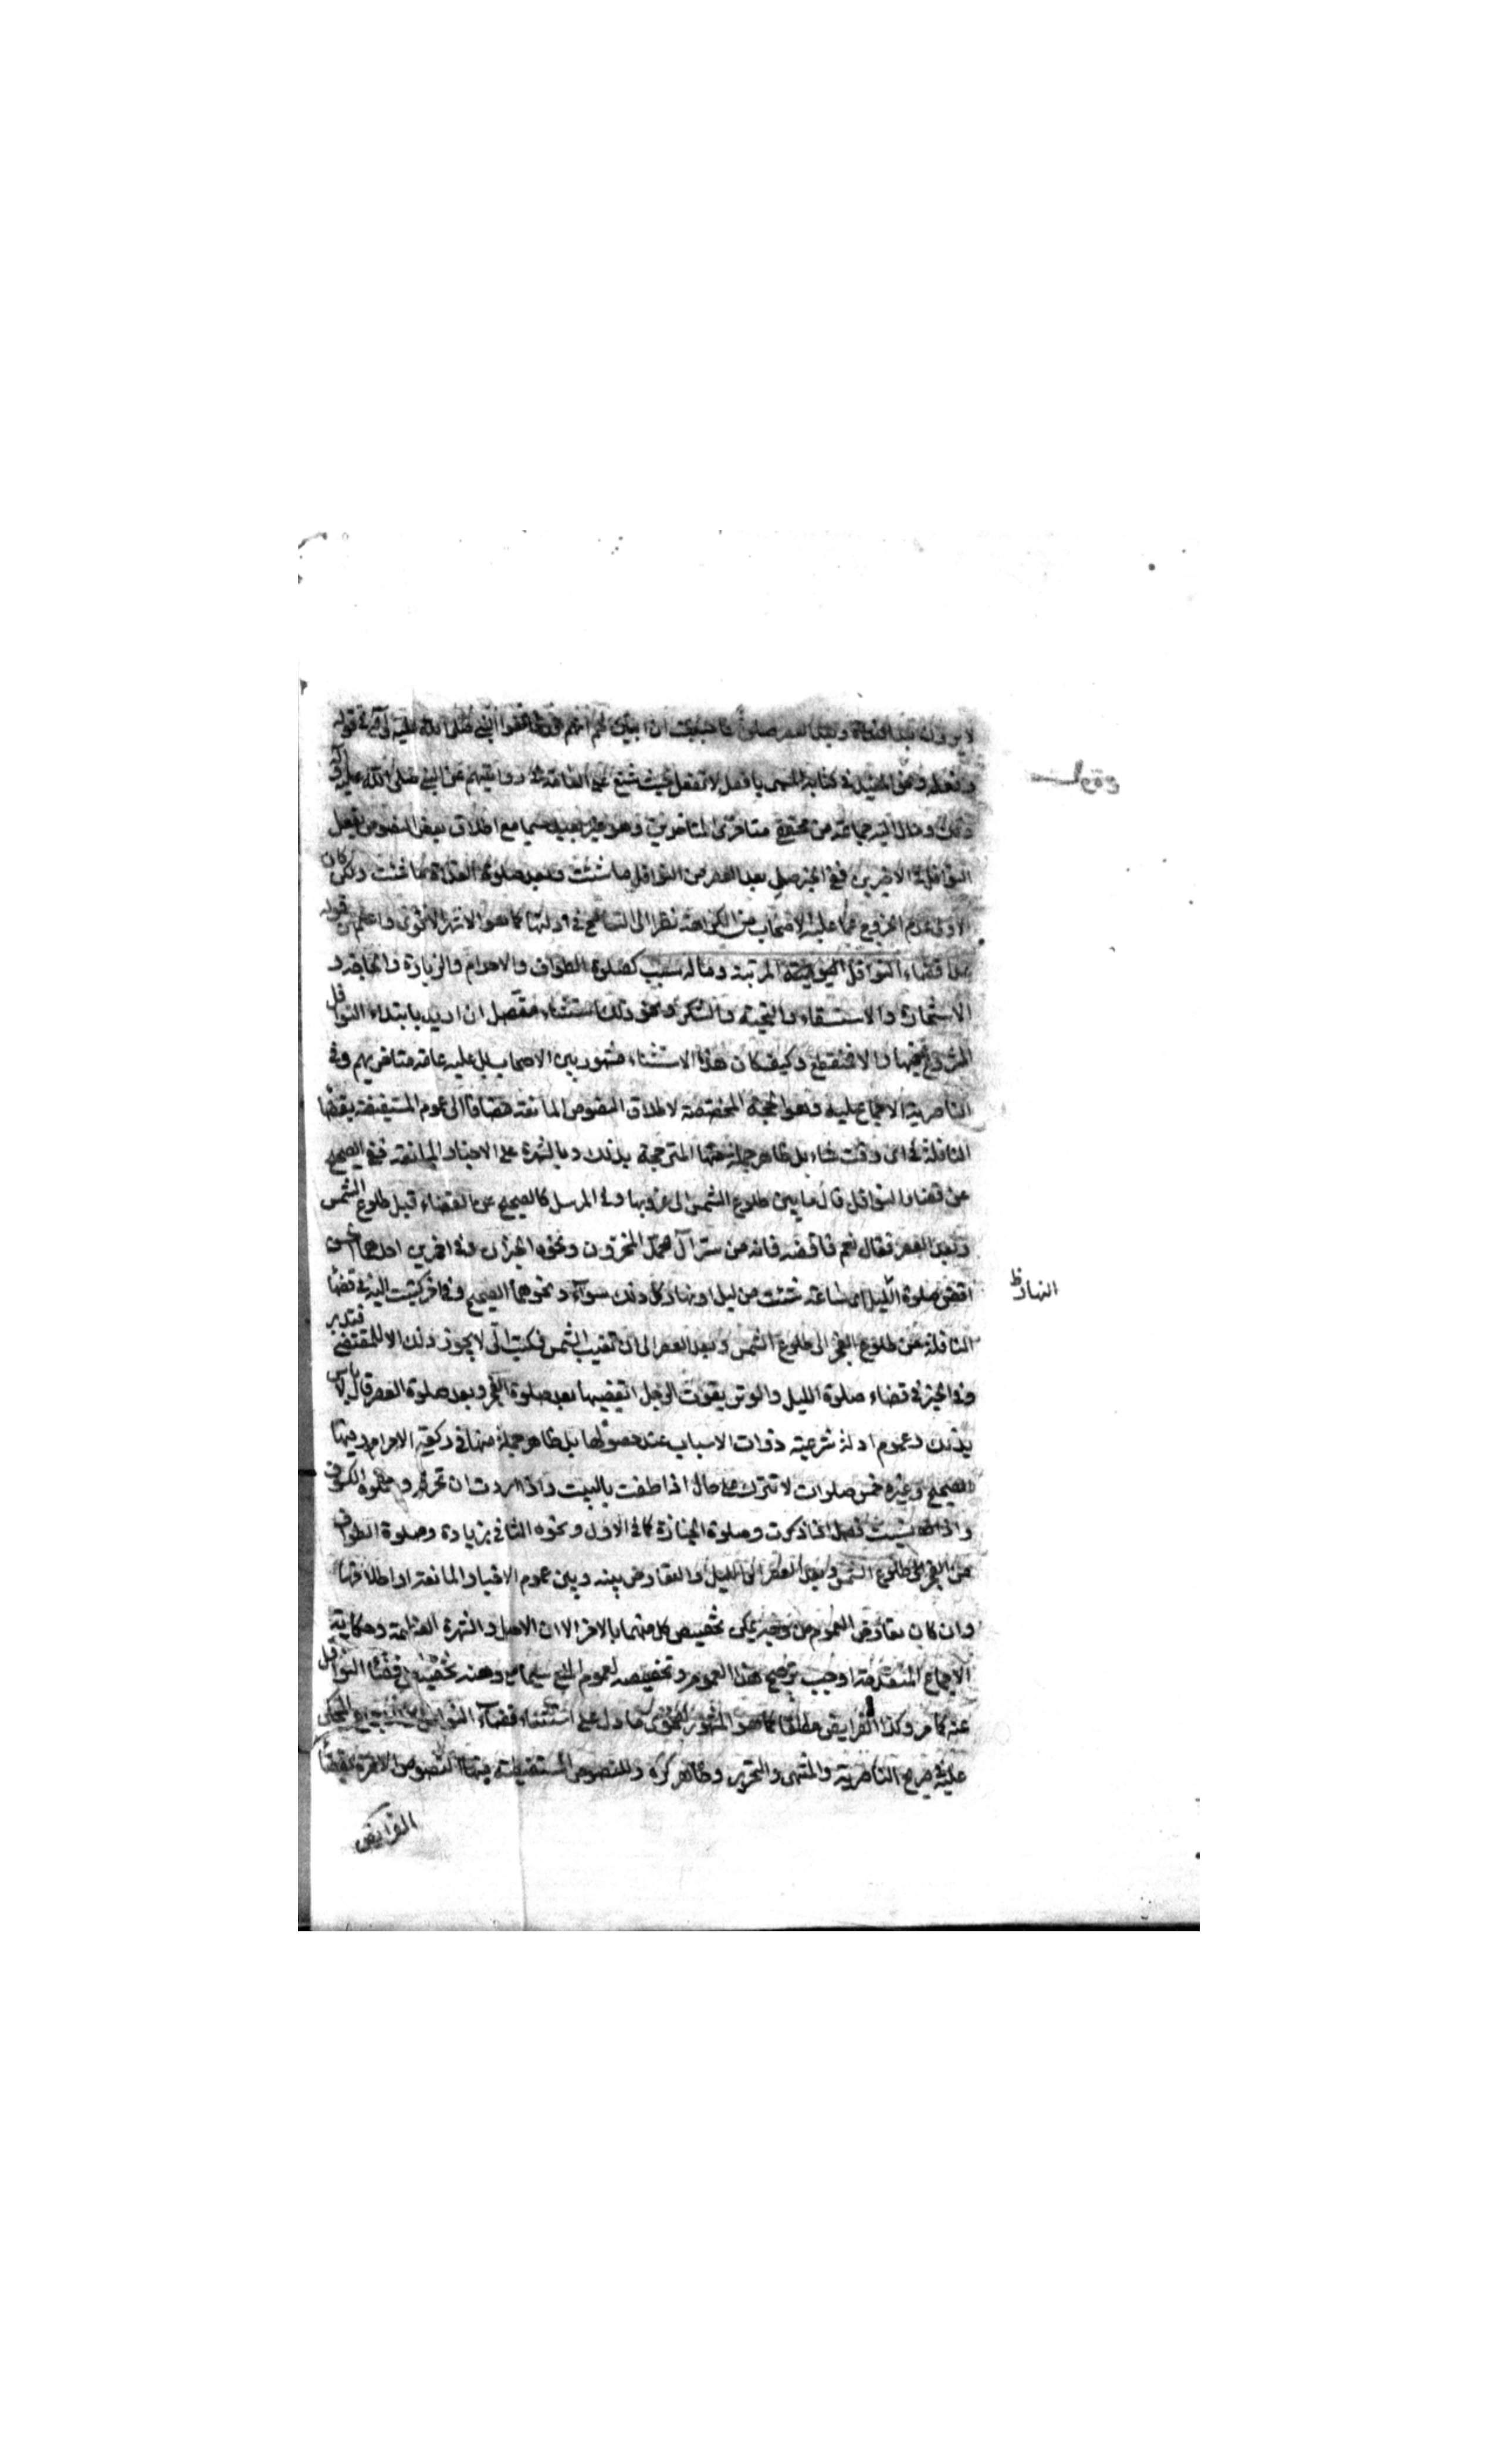 لا يرون بعد الغداة وبعد العصر صلوة فاحببت ان ابين لهم انهم قد خالفوا النبي صلى الله عليه وآله في قوله
وفعله وعن المفيد في كتابه المسمى بافعل لا تفعل حيث شنع على العامة في روايتهم عن النبي صلى الله عليه وآله
ذلك ومال اليه جماعة من محققي متاخري المتاخرين وهو غير بعيد سيما مع اطلاق بعض النصوص بفعل
النوافل في الاخيرين ففي الخبر صل بعد العصر من النوافل ما شئت وبعد صلوة الغداة ما شئت ولكن كان
الاولى عدم الخروج عما عليه الاصحاب من الكراهة نظرا الى التسامح في ادلتها كما هو الاشهر الاقوى واعلم ان قوله
عدا قضاء النوافل المرتبة وما له سبب كصلوة الطواف والاحرام والزيارة والحاجة و
الاستخارة والاستسقاء والتحية والشكر ونحو ذلك استثناء متصل ان اريد بابتداء النوافل
الشروع فيها والا فمنقطع وكيف كان هذا الاستثناء مشهور بين الاصحاب بل عليه عامة متاخريهم وفي
الناصرية الاجماع عليه وهو الحجة المخصصة لاطلاق النصوص المانعة مضافا الى عموم المستفيضة بقضاء
النافلة في اي وقت شاء بل ظاهر جملة منها المترجحة بذلك وبالشهرة على الاخبار المانعة ففي الصحيح
عن قضاء النوافل قال ما بين طلوع الشمس الى غروبها وفي المرسل كالصحيح عن القضاء قبل طلوع الشمس
وبعد العصر فقال نعم فاقضه فانه من سر آل محمد المخزون ونحوه الخبران وفي اخرين احدهما الحسن
اقض صلوة الليل اي ساعة شئت من ليل او نهار كل ذلك سواء ونحوهما الصحيح وفي اخر كتبت اليه في قضاء
النهار ظ
النافلة من طلوع الفجر الى طلوع الشمس وبعد العصر الى ان تغيب الشمس فكتب الي لا يجوز ذلك الا للمقتضي فتدبر
وفي الخبر في قضاء صلوة الليل والوتر يفوت الرجل ايقضيها بعد صلوة الفجر وبعد صلوة العصر قال لا باس
بذلك وعموم ادلة شرعية ذوات الاسباب عند حصولها بل ظاهر جملة منها في ركعتي الاحرام ومنها
الصحيح وغيره خمس صلوات لا تترك على حال اذا طفت بالبيت واذا اردت ان تحرم وصلوة الكسوف
واذا نسيت فصل اذا ذكرت وصلوة الجنازة كما في الاول ونحوه الثاني بزيادة وصلوة الطواف
من الفجر الى طلوع الشمس وبعد العصر الى الليل والتعارض بينه وبين عموم الاخبار المانعة او اطلاقها
وان كان تعارض العموم من وجه يمكن تخصيص كل منهما بالاخر الا ان الاصل والشهرة العظيمة وحكاية
الاجماع المتقدمة اوجب ترجيح هذا العموم وتخصيصه لعموم المنع سيما مع وهنه بتخصيصه في قضاء النوافل
عنه كما مر وكذا الفرايض مطلقا كما هو المشهور لفحوى ما دل على استثناء قضاء النوافل المحكي
عليه في صريح الناصرية والمنتهى والتحرير وظاهر كره وللنصوص المستفيضة منها النصوص الامرة بقضاء
الفرايض